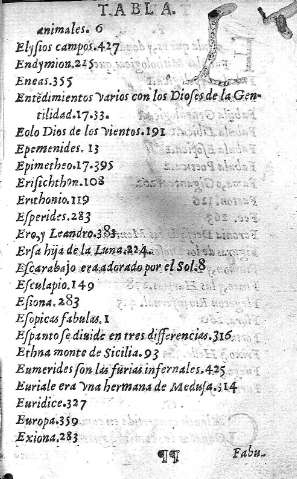 TABLA.
animales. 6
Elysios campos.427
Endymion.225
Eneas.355
Entẽdimientos varios con los Dioses de la Gen-
tilidad.17.33.
Eolo Dios de los vientos.191
Epemenides. 13
Epimetheo.17.395
Erisichthon.108
Erithonio.119
Esperides.283
Ero, y Leandro.383
Ersa hija de la Luna.224.
Escarabajo era adorado por el Sol.8
Esculapio.149
Esiona.283
Esopicas fabulas.1
Espanto se diuide en tres differencias.316
Ethna monte de Sicilia.93
Eumerides son las furias infernales.425
Euriale era vna hermana de Medusa.314
Euridice.327
Europa.359
Exiona.283
¶¶ Fabu.